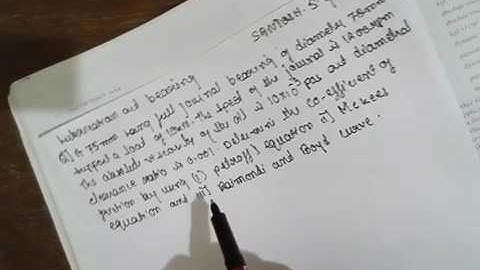 SANTOSH. S
Lubrication and bearing
Q] A 75mm long full journal bearing of diameter 75mm
support a load of 12KN. The speed of the journal is 1800rpm
The absolute viscosity of the oil is 10x10⁻³ Pas and diametral
clearance ratio is 0.001 Determine the co-efficient of
friction by using (i) petroff's equation ii] Mckees
equation and iii] Raimondi and Boyd curve.